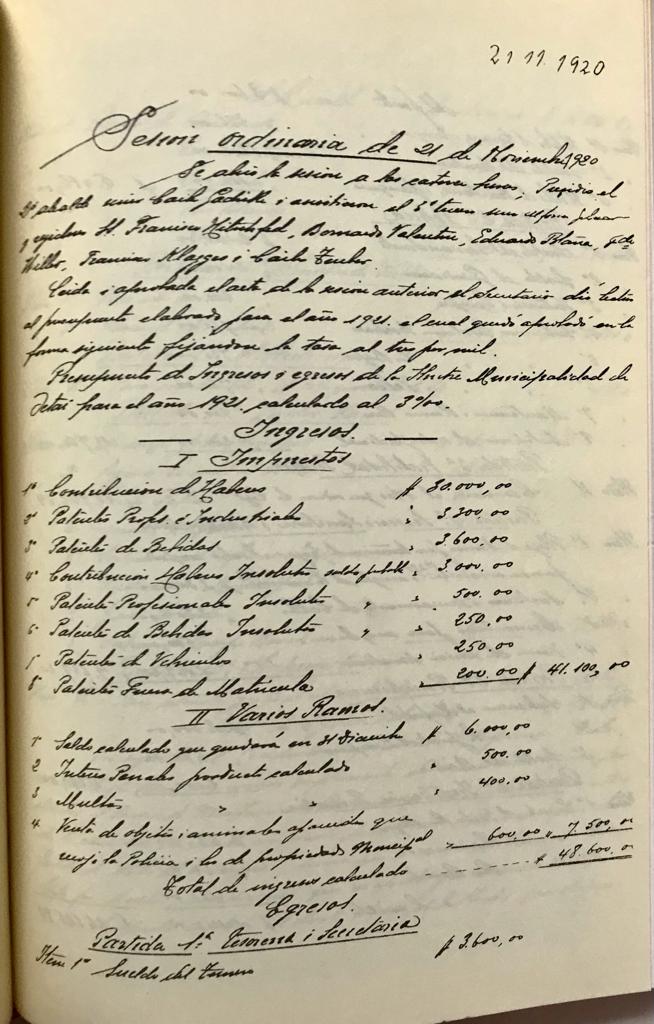 21 11. 1920
Sesion ordinaria de 21 de Noviembre 1920
Se abrió la sesion a las catorce horas, Presidió el
2º alcalde señor Carlos i asistieron el 3º señor
y rejidores Sr. Francisco, Bernardo Valentin, Eduardo
Francisco Klagges i Carlos
Leida i aprobada el acta de la sesion anterior, el Secretario dió lectura
al presupuesto elaborado para el año 1921. el cual quedó aprobado en la
forma siguiente fijandose la tasa al tres por mil.
Presupuesto de Ingresos i egresos de la Ilustre Municipalidad de
para el año 1921. calculado al 3‰.
Ingresos.
I Impuestos
1º Contribucion de Haberes $ 30.000,00
2º Patentes Profs. é Industriales " 3.300.00
3º Patentes de Bebidas " 3.600.00
4º Contribucion Haberes Insolutos saldo " 3.000.00
5 Patentes Profesionales Insolutas " " 500.00
6 Patentes de Bebidas Insolutas " " 250.00
7 Patentes de Vehiculos " 250.00
8 Patentes Fuera de Matricula " 200.00 $ 41.100,00
II Varios Ramos.
1º Saldo calculado que quedará en 31 Diciembre $ 6.000,00
2 Interes Penales producto calculado " 500.00
3 Multas " " " 400,00
4. Venta de objetos i animales aparecidos que
recoji la Policia i los de propiedad Municipal " 600,00 " 7.500,00
Total de ingresos calculado $ 48.600,00
Egresos.
Partida 1ª Tesoreria i Secretaria
Item 1º Sueldo del tesorero $ 3.600,00